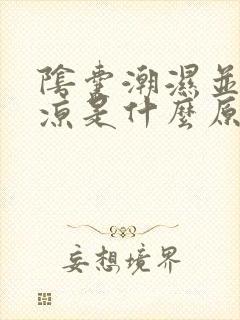 陰囊潮濕並
涼是什麼原
妄想境界